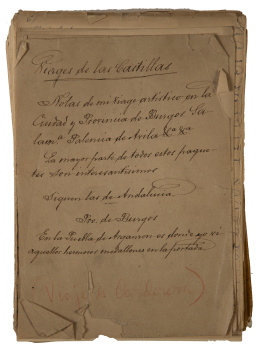 Viages de las Castillas
Notas de mi viage artistico en la
Ciudad y Provincia de Burgos Sa-
lamca Palencia de Avila &a &a
La mayor parte de todos estos paque-
tes son interesantisimos
Siguen las de Andalucia
Pro. de Burgos
En la Puebla de Arganzon es donde yo vi
aquellos hermosos medallones en la portada